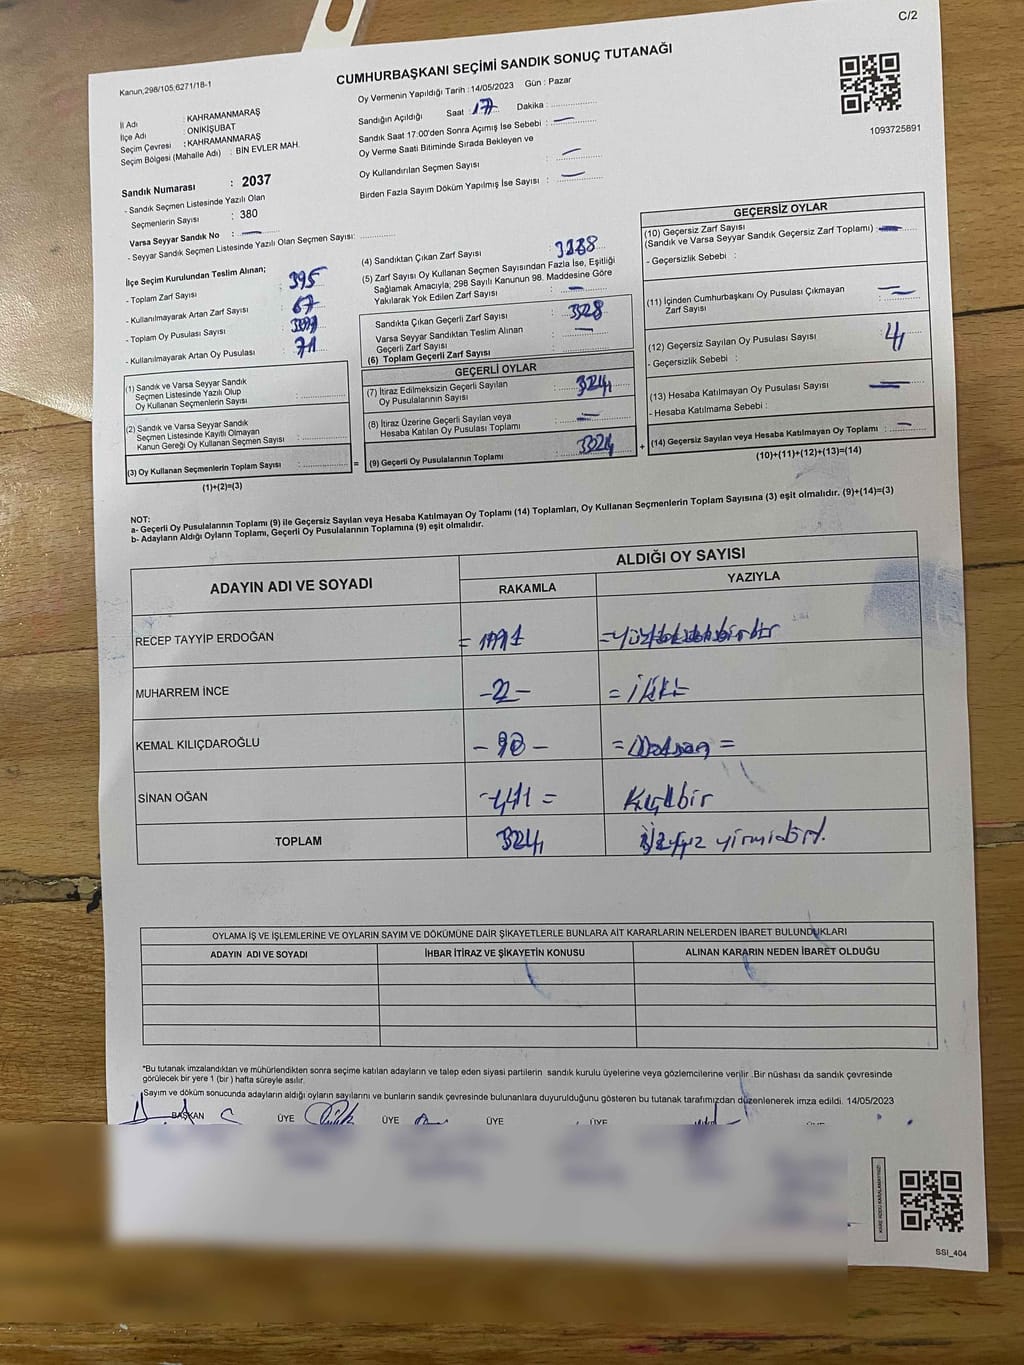 C/2
Kanun,298/105,6271/18-1
CUMHURBAŞKANI SEÇİMİ SANDIK SONUÇ TUTANAĞI
1093725891
İl Adı : KAHRAMANMARAŞ
İlçe Adı : ONİKİŞUBAT
Seçim Çevresi : KAHRAMANMARAŞ
Seçim Bölgesi (Mahalle Adı) : BİN EVLER MAH.
Sandık Numarası : 2037
- Sandık Seçmen Listesinde Yazılı Olan
Seçmenlerin Sayısı : 380
Varsa Seyyar Sandık No :
- Seyyar Sandık Seçmen Listesinde Yazılı Olan Seçmen Sayısı:
Oy Vermenin Yapıldığı Tarih : 14/05/2023 Gün : Pazar
Sandığın Açıldığı Saat : 17 Dakika :
Sandık Saat 17:00'den Sonra Açımış İse Sebebi :
Oy Verme Saati Bitiminde Sırada Bekleyen ve
Oy Kullandırılan Seçmen Sayısı :
Birden Fazla Sayım Döküm Yapılmış İse Sayısı :
İlçe Seçim Kurulundan Teslim Alınan;
- Toplam Zarf Sayısı : 395
- Kullanılmayarak Artan Zarf Sayısı : 67
- Toplam Oy Pusulası Sayısı :
- Kullanılmayarak Artan Oy Pusulası : 71
(1) Sandık ve Varsa Seyyar Sandık
Seçmen Listesinde Yazılı Olup
Oy Kullanan Seçmenlerin Sayısı :
(2) Sandık ve Varsa Seyyar Sandık
Seçmen Listesinde Kayıtlı Olmayan
Kanun Gereği Oy Kullanan Seçmen Sayısı :
(3) Oy Kullanan Seçmenlerin Toplam Sayısı :
(1)+(2)=(3)
(4) Sandıktan Çıkan Zarf Sayısı :
(5) Zarf Sayısı Oy Kullanan Seçmen Sayısından Fazla İse, Eşitliği
Sağlamak Amacıyla; 298 Sayılı Kanunun 98. Maddesine Göre
Yakılarak Yok Edilen Zarf Sayısı :
Sandıkta Çıkan Geçerli Zarf Sayısı : 328
Varsa Seyyar Sandıktan Teslim Alınan
Geçerli Zarf Sayısı :
(6) Toplam Geçerli Zarf Sayısı :
GEÇERLİ OYLAR
(7) İtiraz Edilmeksizin Geçerli Sayılan
Oy Pusulalarının Sayısı : 324
(8) İtiraz Üzerine Geçerli Sayılan veya
Hesaba Katılan Oy Pusulası Toplamı :
= (9) Geçerli Oy Pusulalarının Toplamı : 324 +
GEÇERSİZ OYLAR
(10) Geçersiz Zarf Sayısı
(Sandık ve Varsa Seyyar Sandık Geçersiz Zarf Toplamı) :
- Geçersizlik Sebebi :
(11) İçinden Cumhurbaşkanı Oy Pusulası Çıkmayan
Zarf Sayısı :
(12) Geçersiz Sayılan Oy Pusulası Sayısı : 4
- Geçersizlik Sebebi :
(13) Hesaba Katılmayan Oy Pusulası Sayısı :
- Hesaba Katılmama Sebebi :
(14) Geçersiz Sayılan veya Hesaba Katılmayan Oy Toplamı :
(10)+(11)+(12)+(13)=(14)
NOT:
a- Geçerli Oy Pusulalarının Toplamı (9) ile Geçersiz Sayılan veya Hesaba Katılmayan Oy Toplamı (14) Toplamları, Oy Kullanan Seçmenlerin Toplam Sayısına (3) eşit olmalıdır. (9)+(14)=(3)
b- Adayların Aldığı Oyların Toplamı, Geçerli Oy Pusulalarının Toplamına (9) eşit olmalıdır.
ADAYIN ADI VE SOYADI ALDIĞI OY SAYISI
RAKAMLA YAZIYLA
RECEP TAYYİP ERDOĞAN
MUHARREM İNCE -2- = İki
KEMAL KILIÇDAROĞLU
SİNAN OĞAN Kırkbir
TOPLAM 324 Üçyüz yirmidört.
OYLAMA İŞ VE İŞLEMLERİNE VE OYLARIN SAYIM VE DÖKÜMÜNE DAİR ŞİKAYETLERLE BUNLARA AİT KARARLARIN NELERDEN İBARET BULUNDUKLARI
ADAYIN ADI VE SOYADI İHBAR İTİRAZ VE ŞİKAYETİN KONUSU ALINAN KARARIN NEDEN İBARET OLDUĞU
*Bu tutanak imzalandıktan ve mühürlendikten sonra seçime katılan adayların ve talep eden siyasi partilerin sandık kurulu üyelerine veya gözlemcilerine verilir .Bir nüshası da sandık çevresinde
görülecek bir yere 1 (bir ) hafta süreyle asılır.
Sayım ve döküm sonucunda adayların aldığı oyların sayılarını ve bunların sandık çevresinde bulunanlara duyurulduğunu gösteren bu tutanak tarafımızdan düzenlenerek imza edildi. 14/05/2023
BAŞKAN ÜYE ÜYE ÜYE ÜYE
KARE KODU KARALAMAYINIZ!
SSI_404